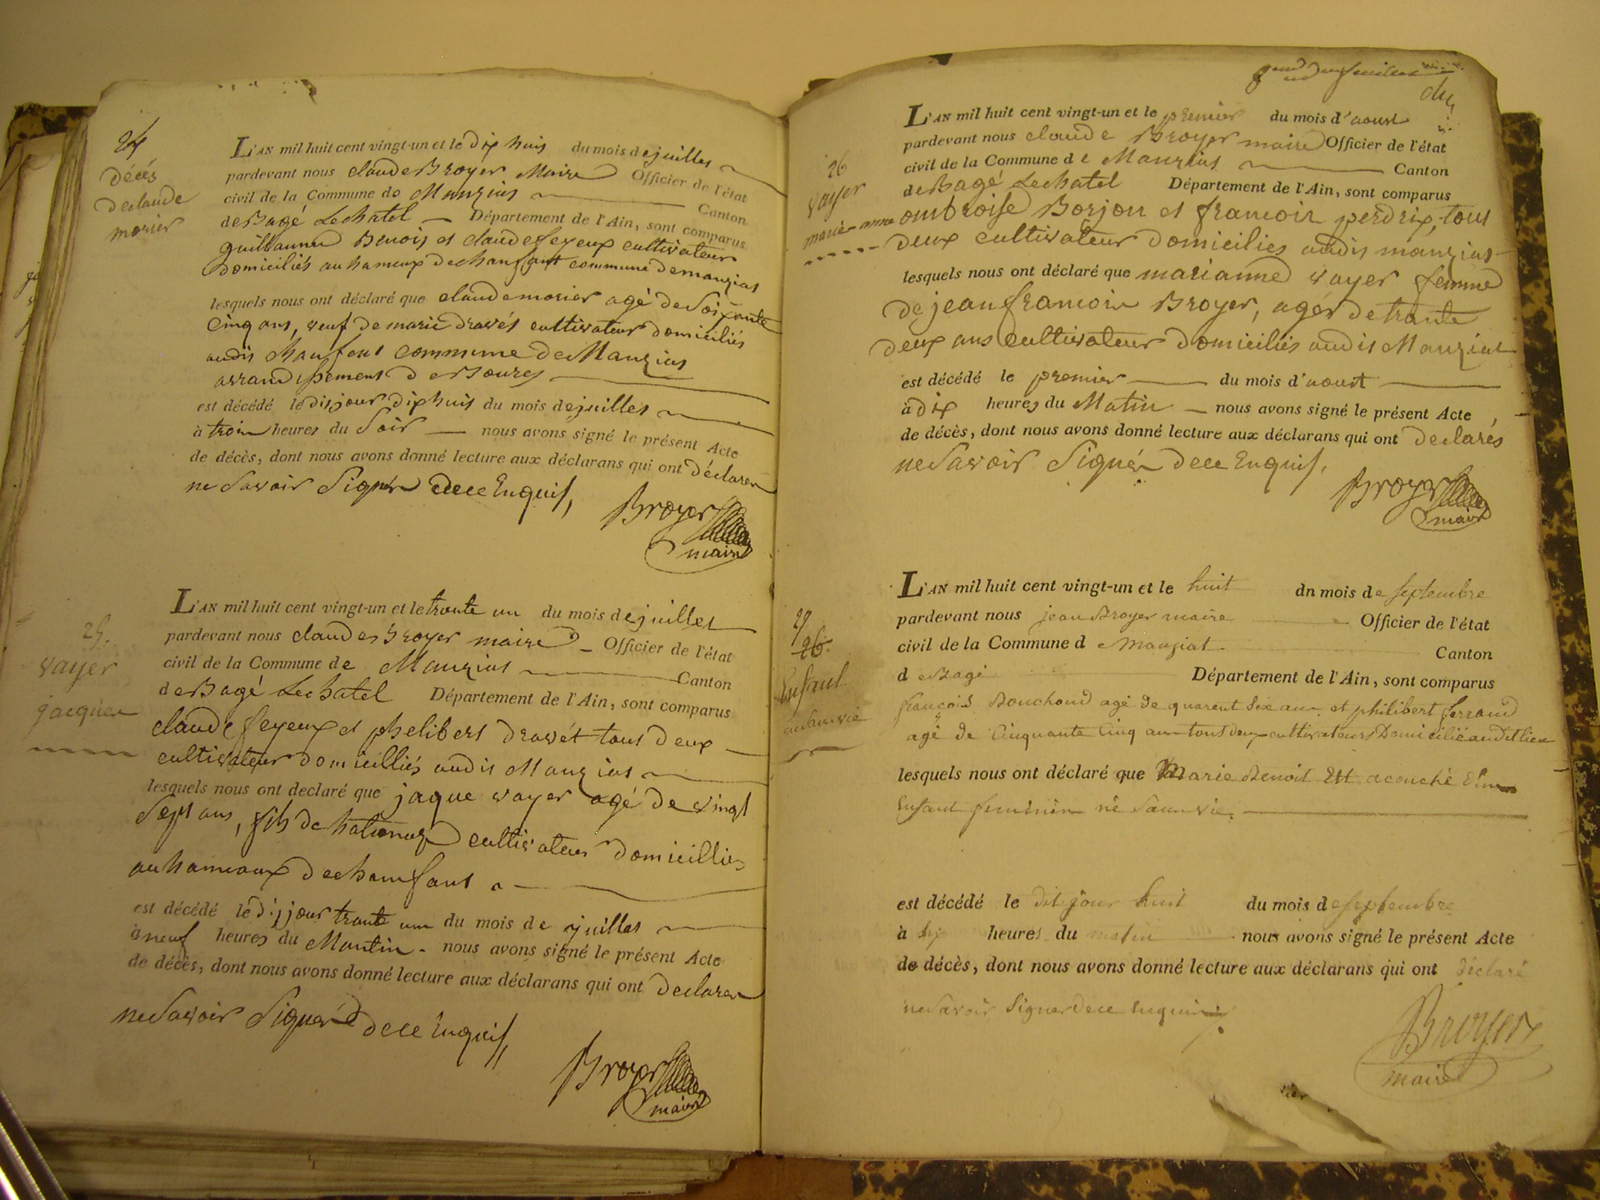 24
décés
de claude
morier
L'AN mil huit cent vingt-un et le dix huis du mois de juillet
pardevant nous claude Broyer Maire Officier de l'état
civil de la Commune de Manzias Canton
de Bagé Lechatel Département de l'Ain, sont comparus
guillaume Benois et claude feyeux cultivateur
domiciliés au hameux de chanfant commune demanzias
lesquels nous ont déclaré que claude morier agé de Soixante
Cinq ans, veuf de marie dravés cultivateur domiciliés
audis Chanfant commune de Manzias
arrandissement de Boures
est décédé le dis jour dix huis du mois de juillet
à trois heures du Soir nous avons signé le présent Acte
de décès, dont nous avons donné lecture aux déclarans qui ont déclarer
ne Savoir Signér de ce Enquis,
Broyer
maire
25.
vayer
jacques
L'AN mil huit cent vingt-un et le trante un du mois de juillet
pardevant nous claude Broyer maire Officier de l'état
civil de la Commune de Manzias Canton
de Bagé Lechatel Département de l'Ain, sont comparus
claude feyeux et phelibert dravét tous deux
cultivateur domicilliés audis Manzias
lesquels nous ont declaré que jaque vayer agé de vingt
Sept ans, fils de cultivateur domicillies
au hameaux de chanfant
est décédé le dis jour trante un du mois de juillet
à neuf heures du Mantin nous avons signé le présent Acte
de décès, dont nous avons donné lecture aux déclarans qui ont declarer
ne Savoir Signér de ce Enquis,
Broyer
maire
26
vayer
marie-anne
L'AN mil huit cent vingt-un et le premier du mois d'aoust
pardevant nous claude Broyer maire Officier de l'état
civil de la Commune de Manzias Canton
de Bagé Lechatel Département de l'Ain, sont comparus
ombroise Borjon et francoir perdrix, tous
deux cultivateur domiciliés audis manzias
lesquels nous ont déclaré que marianne vayer femme
de jean francoir Broyer, agér de trante
deux ans cultivateur domiciliés audis Manziat
est décédé le premier du mois d'aoust
à dix heures du Matin nous avons signé le présent Acte
de décès, dont nous avons donné lecture aux déclarans qui ont declarés
ne Savoir Signér de ce Enquis,
Broyer
maire
27
26
Enfant
L'AN mil huit cent vingt-un et le huit dn mois de septembre
pardevant nous jean Broyer maire Officier de l'état
civil de la Commune de manziat Canton
de Bagé Département de l'Ain, sont comparus
francois Bouchoud agé de quarent six ans et philibert ferraud
agé de Cinquante Cinq ans tout deux cultivateurs Domicilié audit lieu
lesquels nous ont déclaré que Marie Benoit Est acouché d'un
Enfant feminin né Sans vie.
est décédé le dit jour huit du mois de septembre
à heures du matin nous avons signé le présent Acte
de décès, dont nous avons donné lecture aux déclarans qui ont déclaré
ne savoir Signer de ce enquis
Broyer
maire